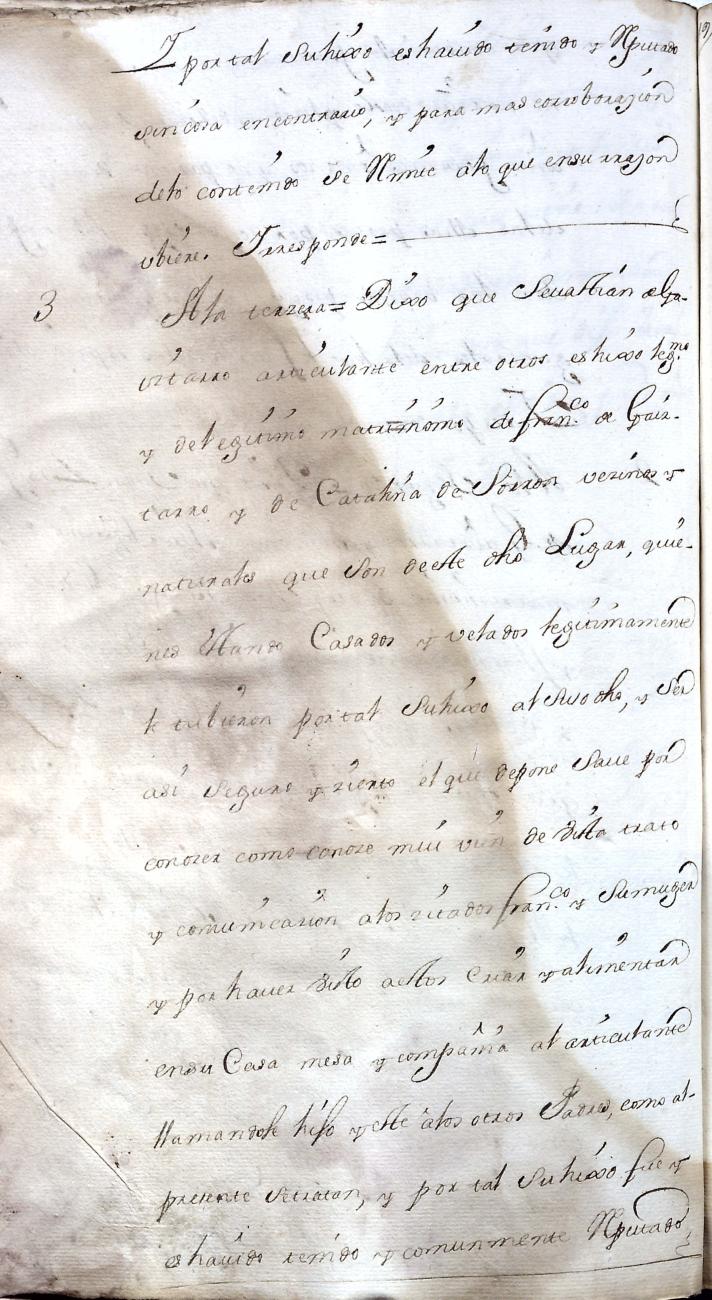 Y por tal su hixo es havido tenido y Rputado
sin cosa encontrario, y para mas corroborazion
delo contenido se Rmite alo que en su rrazon
ubiere. Y rresponde=
3 Ala terzera= Dixo que Sevastian de Ga-
viztarro articulante entre otros es hixo legmo
y de legitimo matrimonio de franco de Gaiz-
tarro y de Catalina de Sorron vezinos y
naturales que son de este dho Lugar, quie-
nes estando Casados y velados legitimamente
le tubieron por tal su hixo al suso dho, y ser
asi seguro y zierto el que depone save por
conozer como conoze mui vien de vista trato
y comunicazion alos zitados franco y su muger
y por haver visto a estos Criar y alimentar
en su Casa mesa y compañia al articulante
llamandole hijo y este alos otros Padres, como al-
presente se tratan, y por tal su hixo fue y
es havido tenido y comunmente Rputado